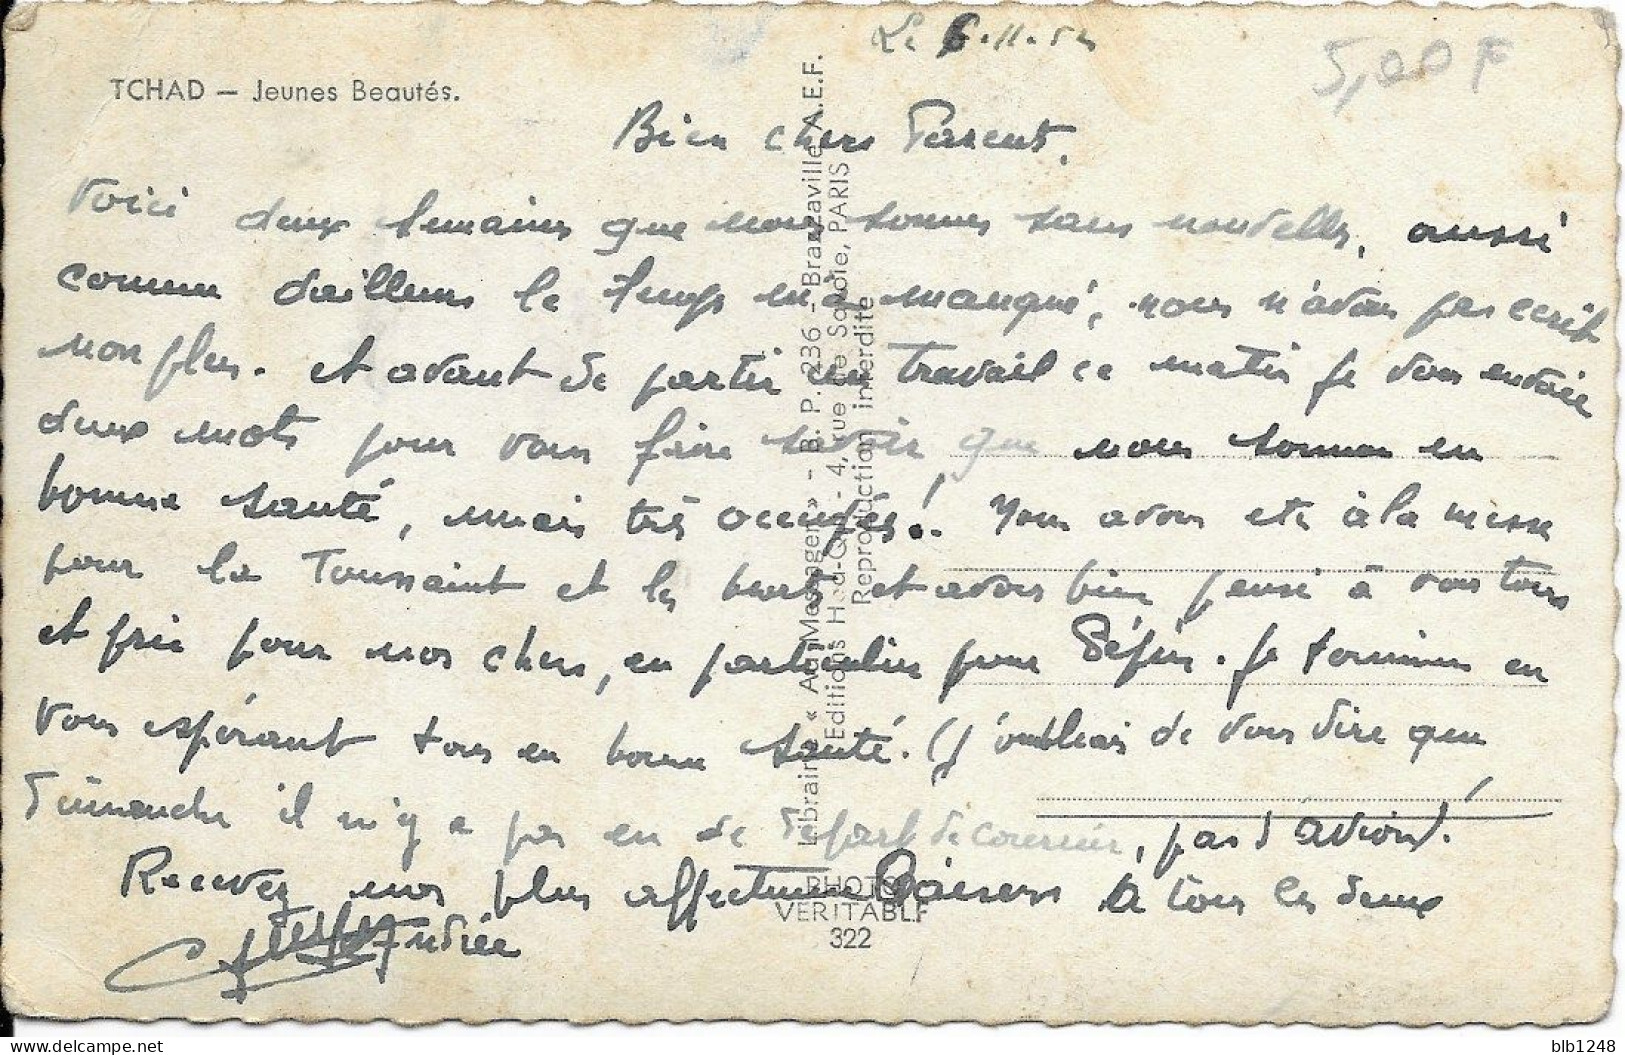 Le 6-11-54
5,00 F
TCHAD — Jeunes Beautés.
Bien chers Parents,
Voici deux semaines que nous sommes sans nouvelles, aussi
comme d'ailleurs le temps m'a manqué, nous n'avons pas ecrit
non plus. et avant de partir au travail ce matin je vous envoie
deux mots pour vous faire savoir que nous sommes en
bonne santé, mais très occupés!. Nous avons eté à la messe
pour la Toussaint et les morts et avons bien pensé à vous tous
et prié pour nos chers, en particulier pour Pépin. Je termine en
vous espérant tous en bonne santé. (j'oubliais de vous dire que
Dimanche il n'y a pas eu de départ de courrier, pas d'avion).
Recevez nos plus affectueux Baisers à tous les deux
Andrée
Librairie « Au Messager » - B. P. 236 - Brazzaville A.E.F.
Editions - 4, rue de Savoie, PARIS
Reproduction interdite
PHOTO
VERITABLE
322
delcampe.net
blb1248